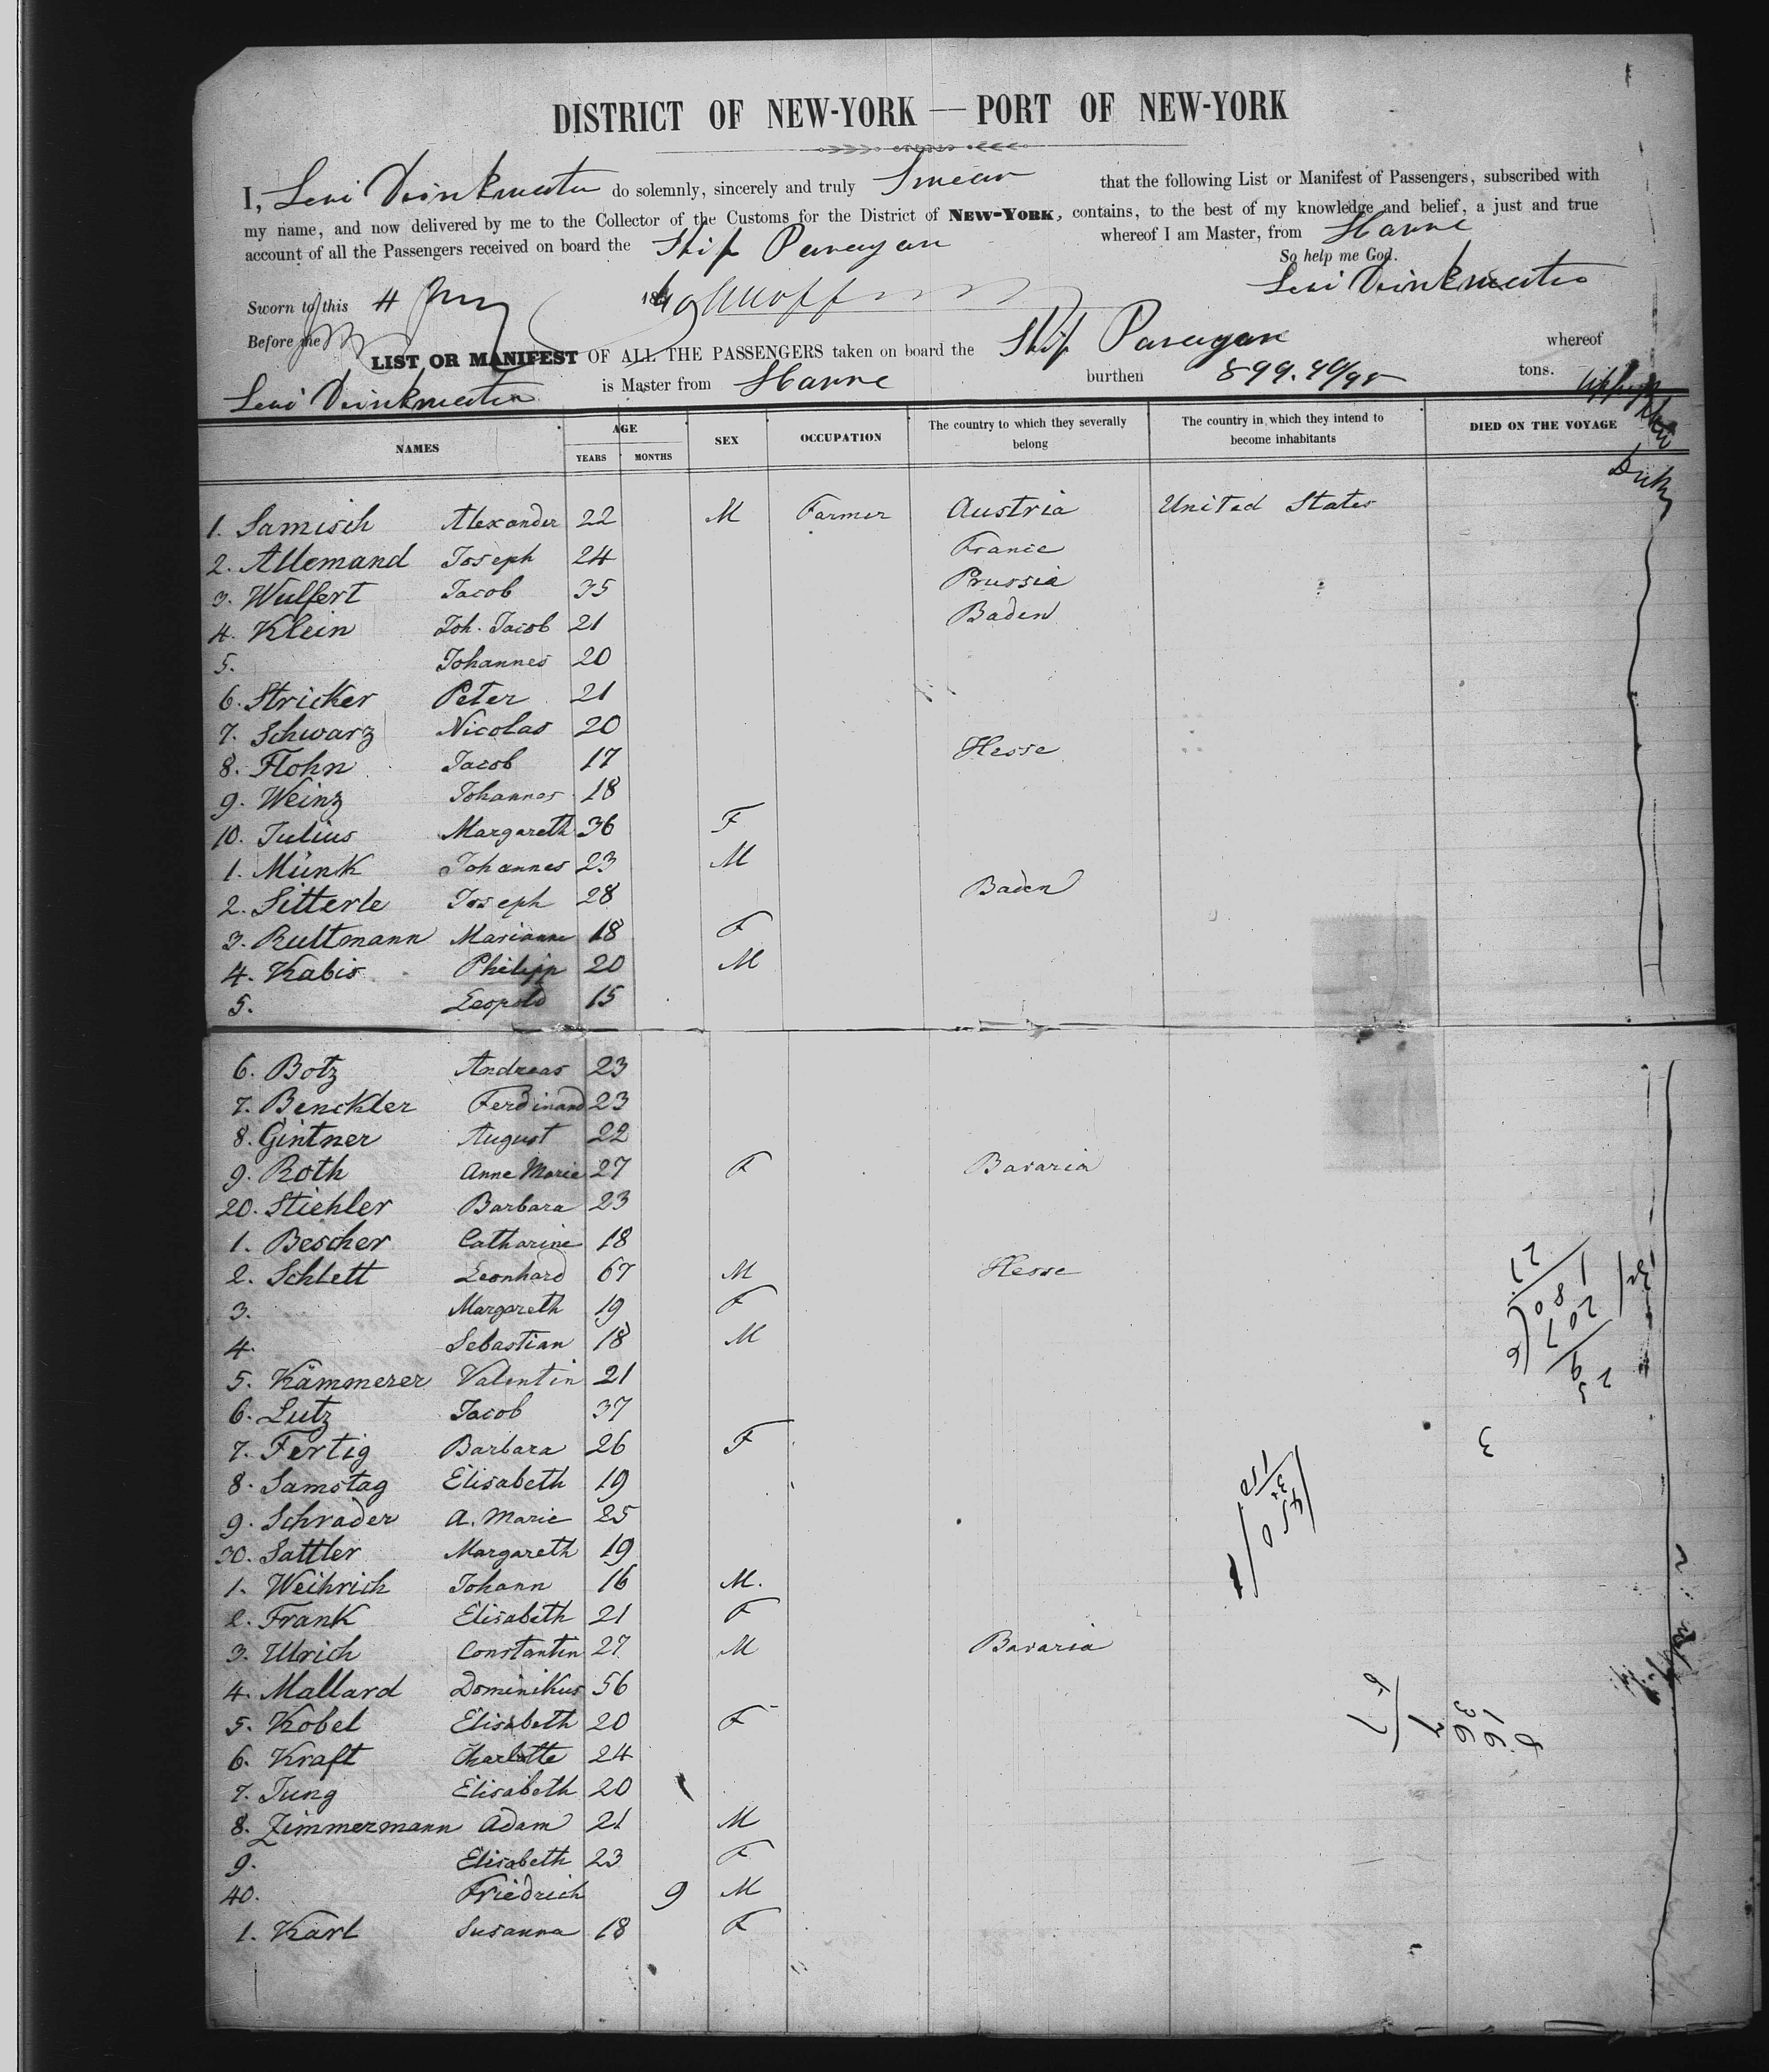 DISTRICT OF NEW-YORK — PORT OF NEW-YORK
I, Levi Drinkwater do solemnly, sincerely and truly Swear that the following List or Manifest of Passengers, subscribed with
my name, and now delivered by me to the Collector of the Customs for the District of NEW-YORK, contains, to the best of my knowledge and belief, a just and true
account of all the Passengers received on board the Ship Paragon whereof I am Master, from Havre
So help me God.
Sworn to this 4 186 Levi Drinkwater
Before me
LIST OR MANIFEST OF ALL THE PASSENGERS taken on board the Ship Paragon whereof
Levi Drinkwater is Master from Havre burthen 899.40/95 tons.
NAMES AGE YEARS MONTHS SEX OCCUPATION The country to which they severally belong The country in which they intend to become inhabitants DIED ON THE VOYAGE
1. Samisch Alexander 22 M Farmer Austria United States
2. Allemand Joseph 24 France
3. Wulfert Jacob 35 Prussia
4. Klein Joh. Jacob 21 Baden
5. Johannes 20
6. Stricker Peter 21
7. Schwarz Nicolas 20
8. Flohn Jacob 17 Hesse
9. Weinz Johannes 18
10. Julius Margareth 36 F
1. Münk Johannes 23 M
2. Sitterle Joseph 28 Baden
3. Rultmann Marianne 18 F
4. Kabis Philipp 20 M
5. Leopold 15
6. Botz Andreas 23
7. Benckler Ferdinand 23
8. Gintner August 22
9. Roth Anne Marie 27 F Bavaria
20. Stiehler Barbara 23
1. Bescher Catharine 18
2. Schlett Leonhard 67 M Hesse
3. Margareth 19 F
4. Sebastian 18 M
5. Kämmerer Valentin 21
6. Lutz Jacob 37
7. Fertig Barbara 26 F
8. Samstag Elisabeth 19
9. Schrader A. Marie 25
30. Sattler Margareth 19
1. Weihrich Johann 16 M.
2. Frank Elisabeth 21 F
3. Ulrich Constantin 27 M Bavaria
4. Mallard Dominikus 56
5. Kobel Elisabeth 20 F
6. Kraft Charlotte 24
7. Jung Elisabeth 20
8. Zimmermann Adam 21 M
9. Elisabeth 23 F
40. Friedrich 9 M
1. Karl Susanna 18 F